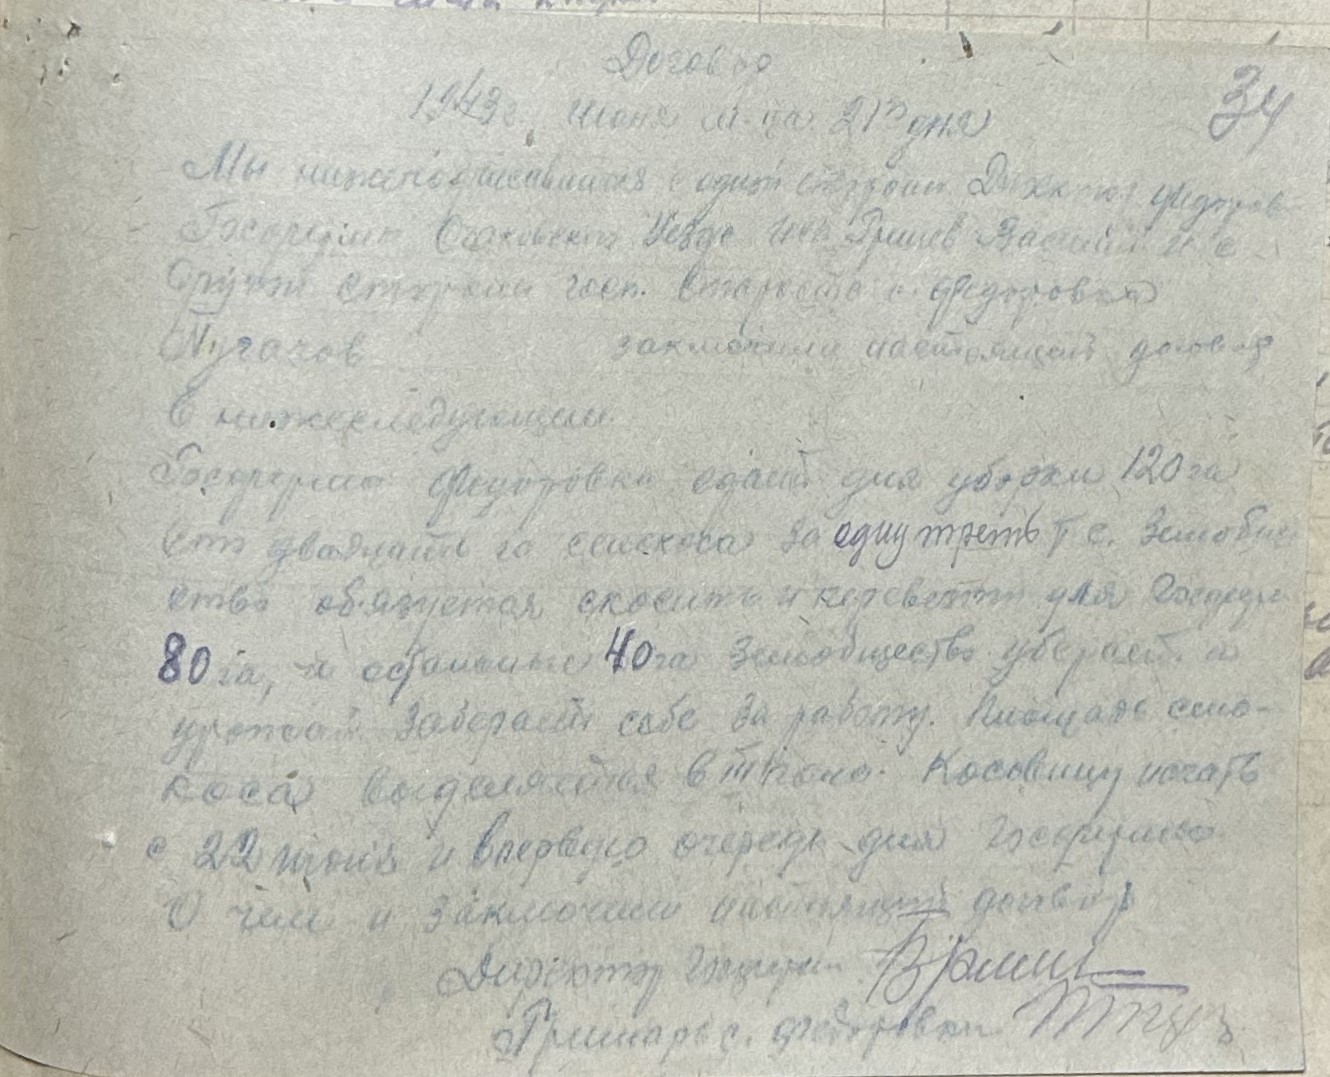 34
Договор
1943г. июня м-ца 21го дня
Мы нижеподписавшиеся с одной стороны Директор Федоров-
Госферми Очаковского Уезда Василий и с
другой стороны госп. Староста с. Федоровка
Пугачов заключили настоящий договор
о нижеследующем
Госферма Федоровка сдает для уборки 120 га
сто двадцать га сенокоса за одну треть т. е. Земобще
ство обязуется скосить и перевезти для Госферми
80 га, и остальные 40 га Земобщество убирает и
урожай забирает себе за работу. Площадь сено-
коса выделяется в натуре. Косовицу начать
с 22 июня и в первую очередь для Госферми
О чем и заключили настоящий договор
Директор Госферми
Примарь с. Федоровки